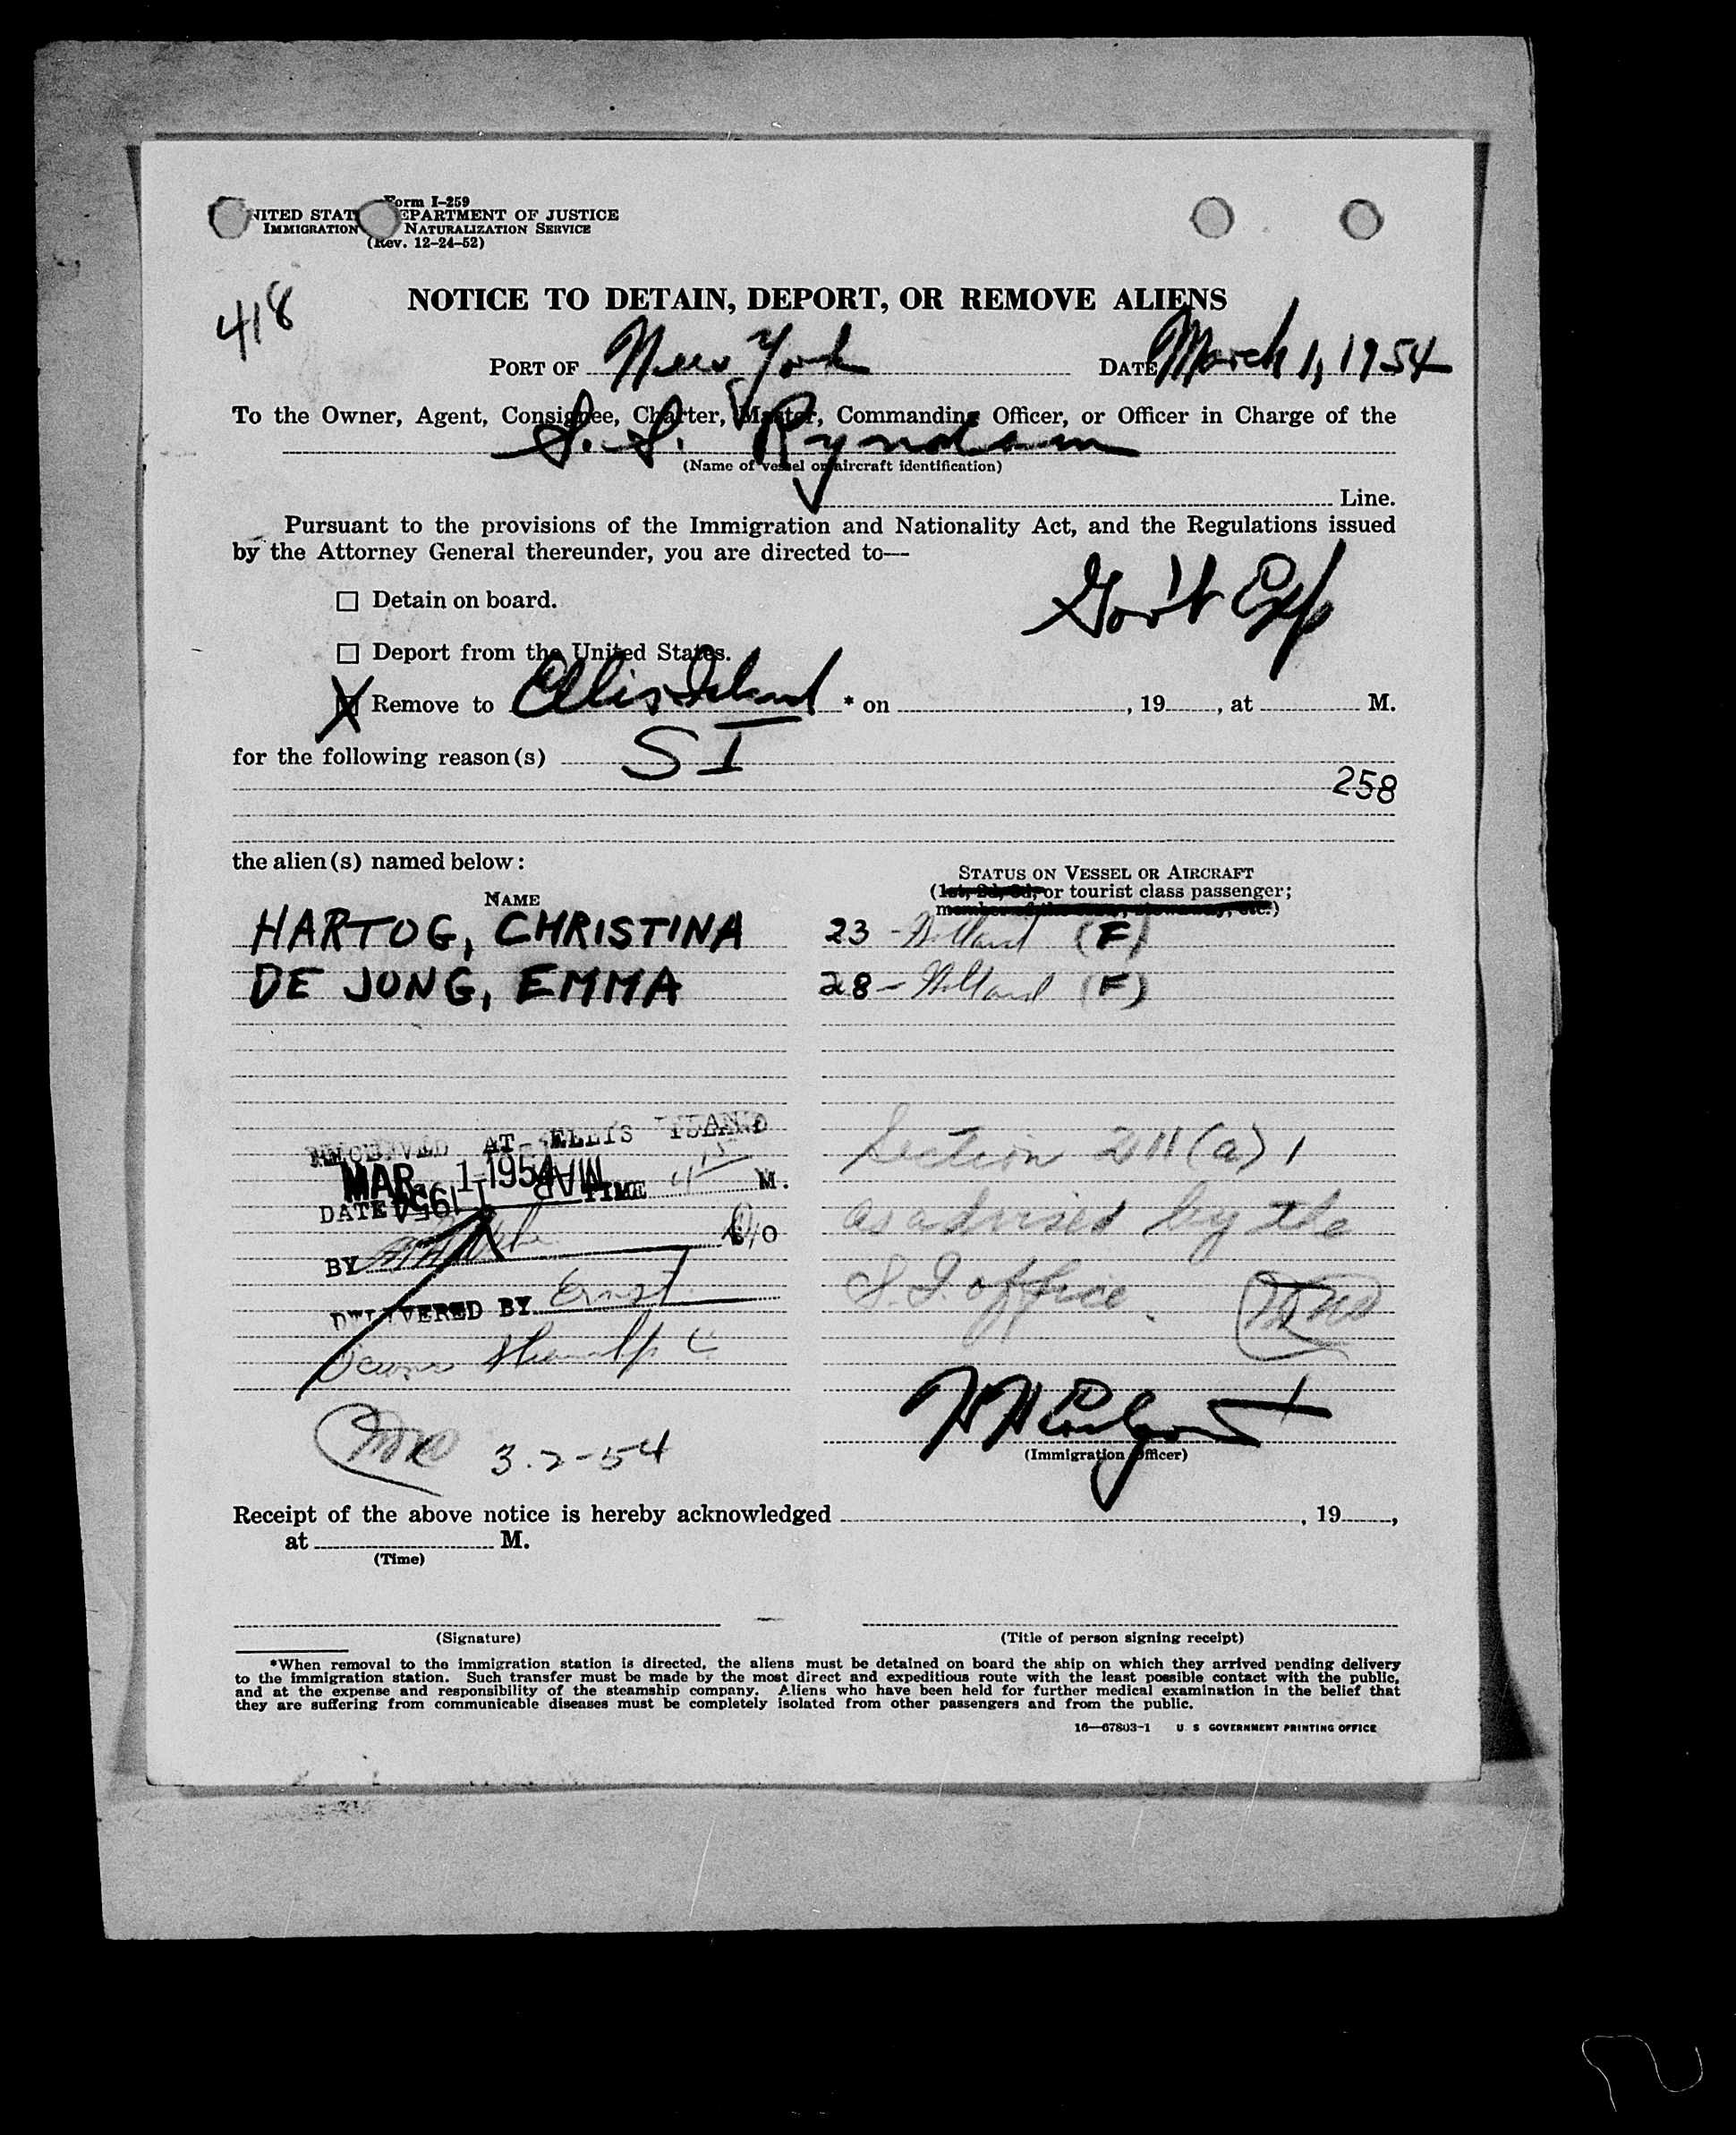 Form I-259
UNITED STATES DEPARTMENT OF JUSTICE
IMMIGRATION NATURALIZATION SERVICE
(Rev. 12-24-52)
418
NOTICE TO DETAIN, DEPORT, OR REMOVE ALIENS
PORT OF New York DATE March 1, 1954
To the Owner, Agent, Consignee, Charter, Master, Commanding Officer, or Officer in Charge of the
S.S. Ryndam
(Name of vessel or aircraft identification)
Line.
Pursuant to the provisions of the Immigration and Nationality Act, and the Regulations issued
by the Attorney General thereunder, you are directed to—
Gov't Exp
☐ Detain on board.
☐ Deport from the United States.
X Remove to Ellis Island * on , 19 , at M.
for the following reason(s) SI
258
the alien(s) named below:
STATUS ON VESSEL OR AIRCRAFT
(1st, 2d, 3d, or tourist class passenger;
NAME
HARTOG, CHRISTINA 23 - Holland (F)
DE JONG, EMMA 28 - Holland (F)
RECEIVED AT ELLIS ISLAND
MAR 1 1954
DATE TIME 4 15 M.
BY D/O
DELIVERED BY Ernst
Section 211(a) 1
as advised by the
S.I. office.
(Immigration Officer)
3-2-54
Receipt of the above notice is hereby acknowledged , 19 ,
at M.
(Time)
(Signature) (Title of person signing receipt)
*When removal to the immigration station is directed, the aliens must be detained on board the ship on which they arrived pending delivery
to the immigration station. Such transfer must be made by the most direct and expeditious route with the least possible contact with the public,
and at the expense and responsibility of the steamship company. Aliens who have been held for further medical examination in the belief that
they are suffering from communicable diseases must be completely isolated from other passengers and from the public.
16—67803-1 U. S. GOVERNMENT PRINTING OFFICE